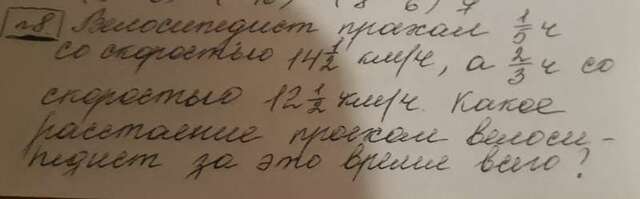 №8 Велосипедист проехал 1/5 ч
со скоростью 14 1/2 км/ч, а 2/3 ч со
скоростью 12 1/2 км/ч. Какое
расстаение проехал велоси-
педист за это время всего?